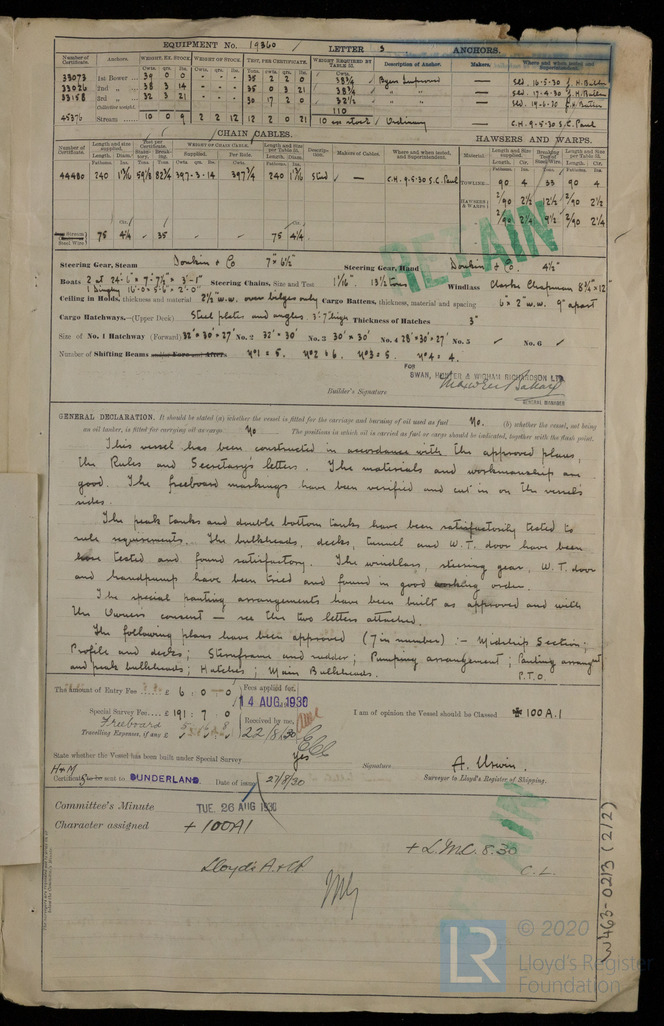 EQUIPMENT No. 19360 / LETTER S ANCHORS.
Number of Certificate. Anchors. WEIGHT, EX. STOCK. WEIGHT OF STOCK. TEST, PER CERTIFICATE. WEIGHT REQUIRED BY TABLE 31. Description of Anchor. Makers. Where and when tested and Superintendent.
33073 1st Bower ... 39 0 0 - - - 35 2 2 0 38¾ Byers Improved — Sld. 16.5.30 J.H. Butler
33026 2nd „ 38 3 14 - - - 35 0 3 21 38¾ „ „ — Sld. 17.4.30 J.H. Butler
33158 3rd „ 32 3 21 - - - 30 17 2 0 32½ „ „ — Sld. 19.6.30 J.H. Butler
Collective weight. 110
45376 Stream 10 0 9 2 2 12 12 2 0 21 10 ex stock / Ordinary — C.H. 9.5.30 S.C. Paul
CHAIN CABLES. HAWSERS AND WARPS.
44480 240 1 15/16 59⅛ 82¾ 397-3-14 397¾ 240 1 15/16 Stud — C.H. 9.5.30 S.C. Paul
TOWLINE 90 4 33 90 4
HAWSERS & WARPS 2/90 2½ 12½ 2/90 2½
2/90 2¼ 9½ 2/90 2¼
Steel Wire 75 4¼ - 35 75 4¼
RETAIN
Steering Gear, Steam Donkin & Co 7" × 6½" Steering Gear, Hand Donkin & Co. 4½"
Boats 2 at 24.6" × 7'-7½" × 3'-1" Steering Chains, Size and Test 1 1/16" 13½ tons Windlass Clarke Chapman 8¾" × 12"
1 Dinghy 16'-0" × 5'-6" × 2'-0"
Ceiling in Holds, thickness and material 2½" w.w. over bilges only Cargo Battens, thickness, material and spacing 6" × 2" w.w. 9" apart
Cargo Hatchways.—(Upper Deck) Steel plates and angles 3'-7" high Thickness of Hatches 3"
Size of No. 1 Hatchway (Forward) 32' × 30' × 27' No. 2 32' × 30' No. 3 30' × 30' No. 4 28' × 30' × 27' No. 5 / No. 6 /
Number of Shifting Beams and/or Fore and Afters No 1 = 5. No 2 = 6. No 3 = 5. No 4 = 4.
FOR
SWAN, HUNTER & WIGHAM RICHARDSON LTD.
Builder's Signature
GENERAL MANAGER
GENERAL DECLARATION. It should be stated (a) whether the vessel is fitted for the carriage and burning of oil used as fuel No. (b) whether the vessel, not being
an oil tanker, is fitted for carrying oil as cargo No The positions in which oil is carried as fuel or cargo should be indicated, together with the flash point.
This vessel has been constructed in accordance with the approved plans,
the Rules and Secretary's letters. The materials and workmanship are
good. The freeboard markings have been verified and cut in on the vessel's
sides.
The peak tanks and double bottom tanks have been satisfactorily tested to
rule requirements. The bulkheads, decks, tunnel and W.T. door have been
hose tested and found satisfactory. The windlass, steering gear, W.T. door
and handpump have been tried and found in good working order.
The special panting arrangements have been built as approved and with
the Owners consent — see the two letters attached.
The following plans have been approved (7 in number) :- Midship Section;
Profile and decks; Sternframe and rudder; Pumping arrangement; Panting arrangt
and peak bulkheads; Hatches; Main Bulkheads. P.T.O.
The amount of Entry Fee £ 6 : 0 : 0 Fees applied for,
14 AUG. 1930
Special Survey Fee £ 191 : 7 : 0 Received by me,
Freeboard
Travelling Expenses, if any £ 22/8/30
I am of opinion the Vessel should be Classed ✠ 100 A.1
State whether the Vessel has been built under Special Survey Yes
Signature A. Urwin.
Surveyor to Lloyd's Register of Shipping.
H+M
Certificate to be sent to SUNDERLAND. Date of issue 27/8/30
Committee's Minute TUE. 26 AUG 1930
Character assigned + 100A1
+ L.M.C. 8.30
Lloyd's A.&C.P.
C.L.
RETAIN
W463-0213 (2/2)
© 2020
LR Lloyd's Register
Foundation